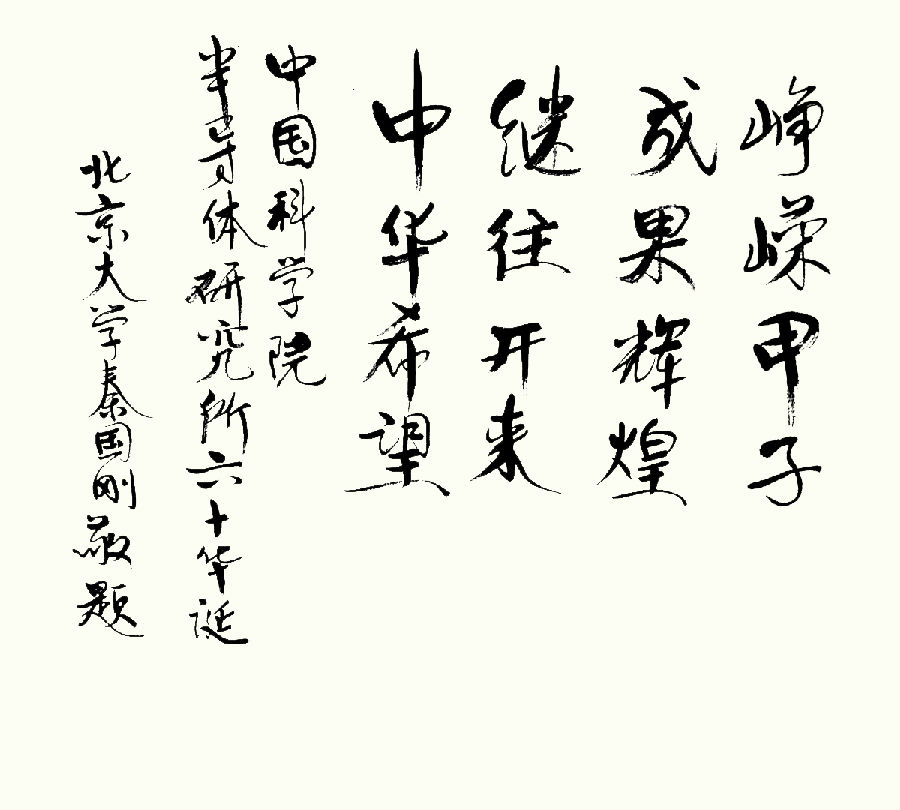 峥嵘甲子
成果辉煌
继往开来
中华希望
中国科学院
半导体研究所六十华诞
北京大学秦国刚敬题